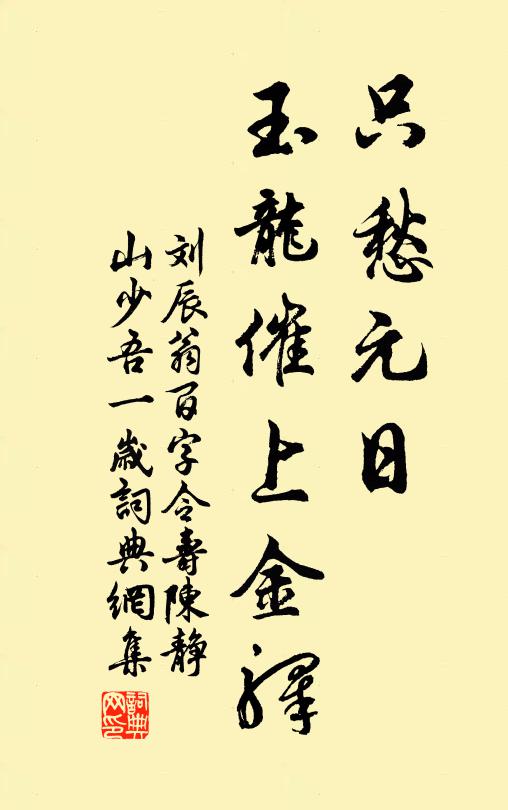 只愁元日
玉龍催上金驛
刘辰翁百字令壽陳静
山少吾一歲詞典網集
詞典
网印